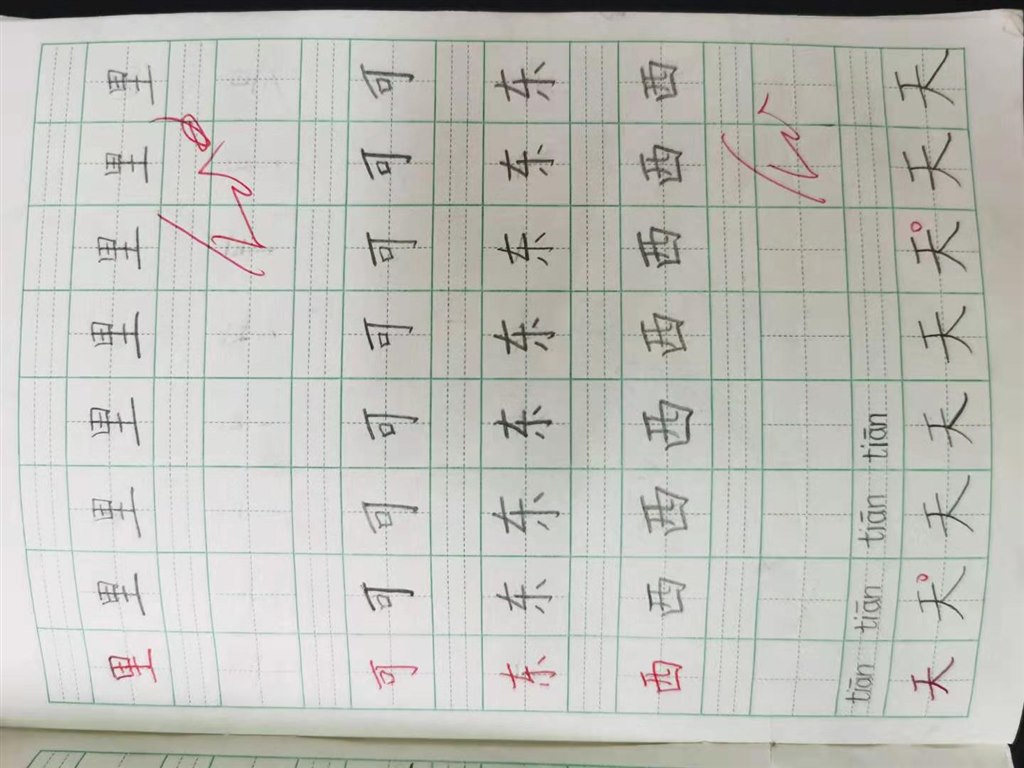 里 里 里 里 里 里 里 里
可 可 可 可 可 可 可 可
东 东 东 东 东 东 东 东
西 西 西 西 西 西 西 西
tiān tiān tiān tiān
天 天 天 天 天 天 天 天